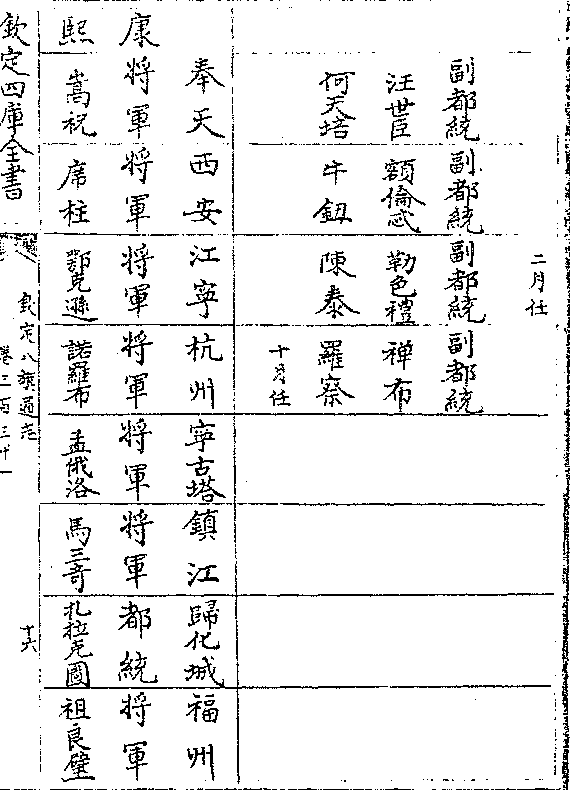 二月任
副都統 副都統 副都統 副都統
汪世臣 額倫忒 勒色禮 禅布
何天培 牛鈕 陳泰 羅察
十月任
奉天 西安 江寧 杭州 寧古塔 鎮江 歸化城 福州
康 將軍 將軍 將軍 將軍 將軍 將軍 都統 將軍
熙 嵩祝 席柱 鄂克遜 諾羅布 孟俄洛 馬三奇 扎拉克圖 祖良璧
欽定四庫全書
欽定八旗通志
卷三百三十一
十六